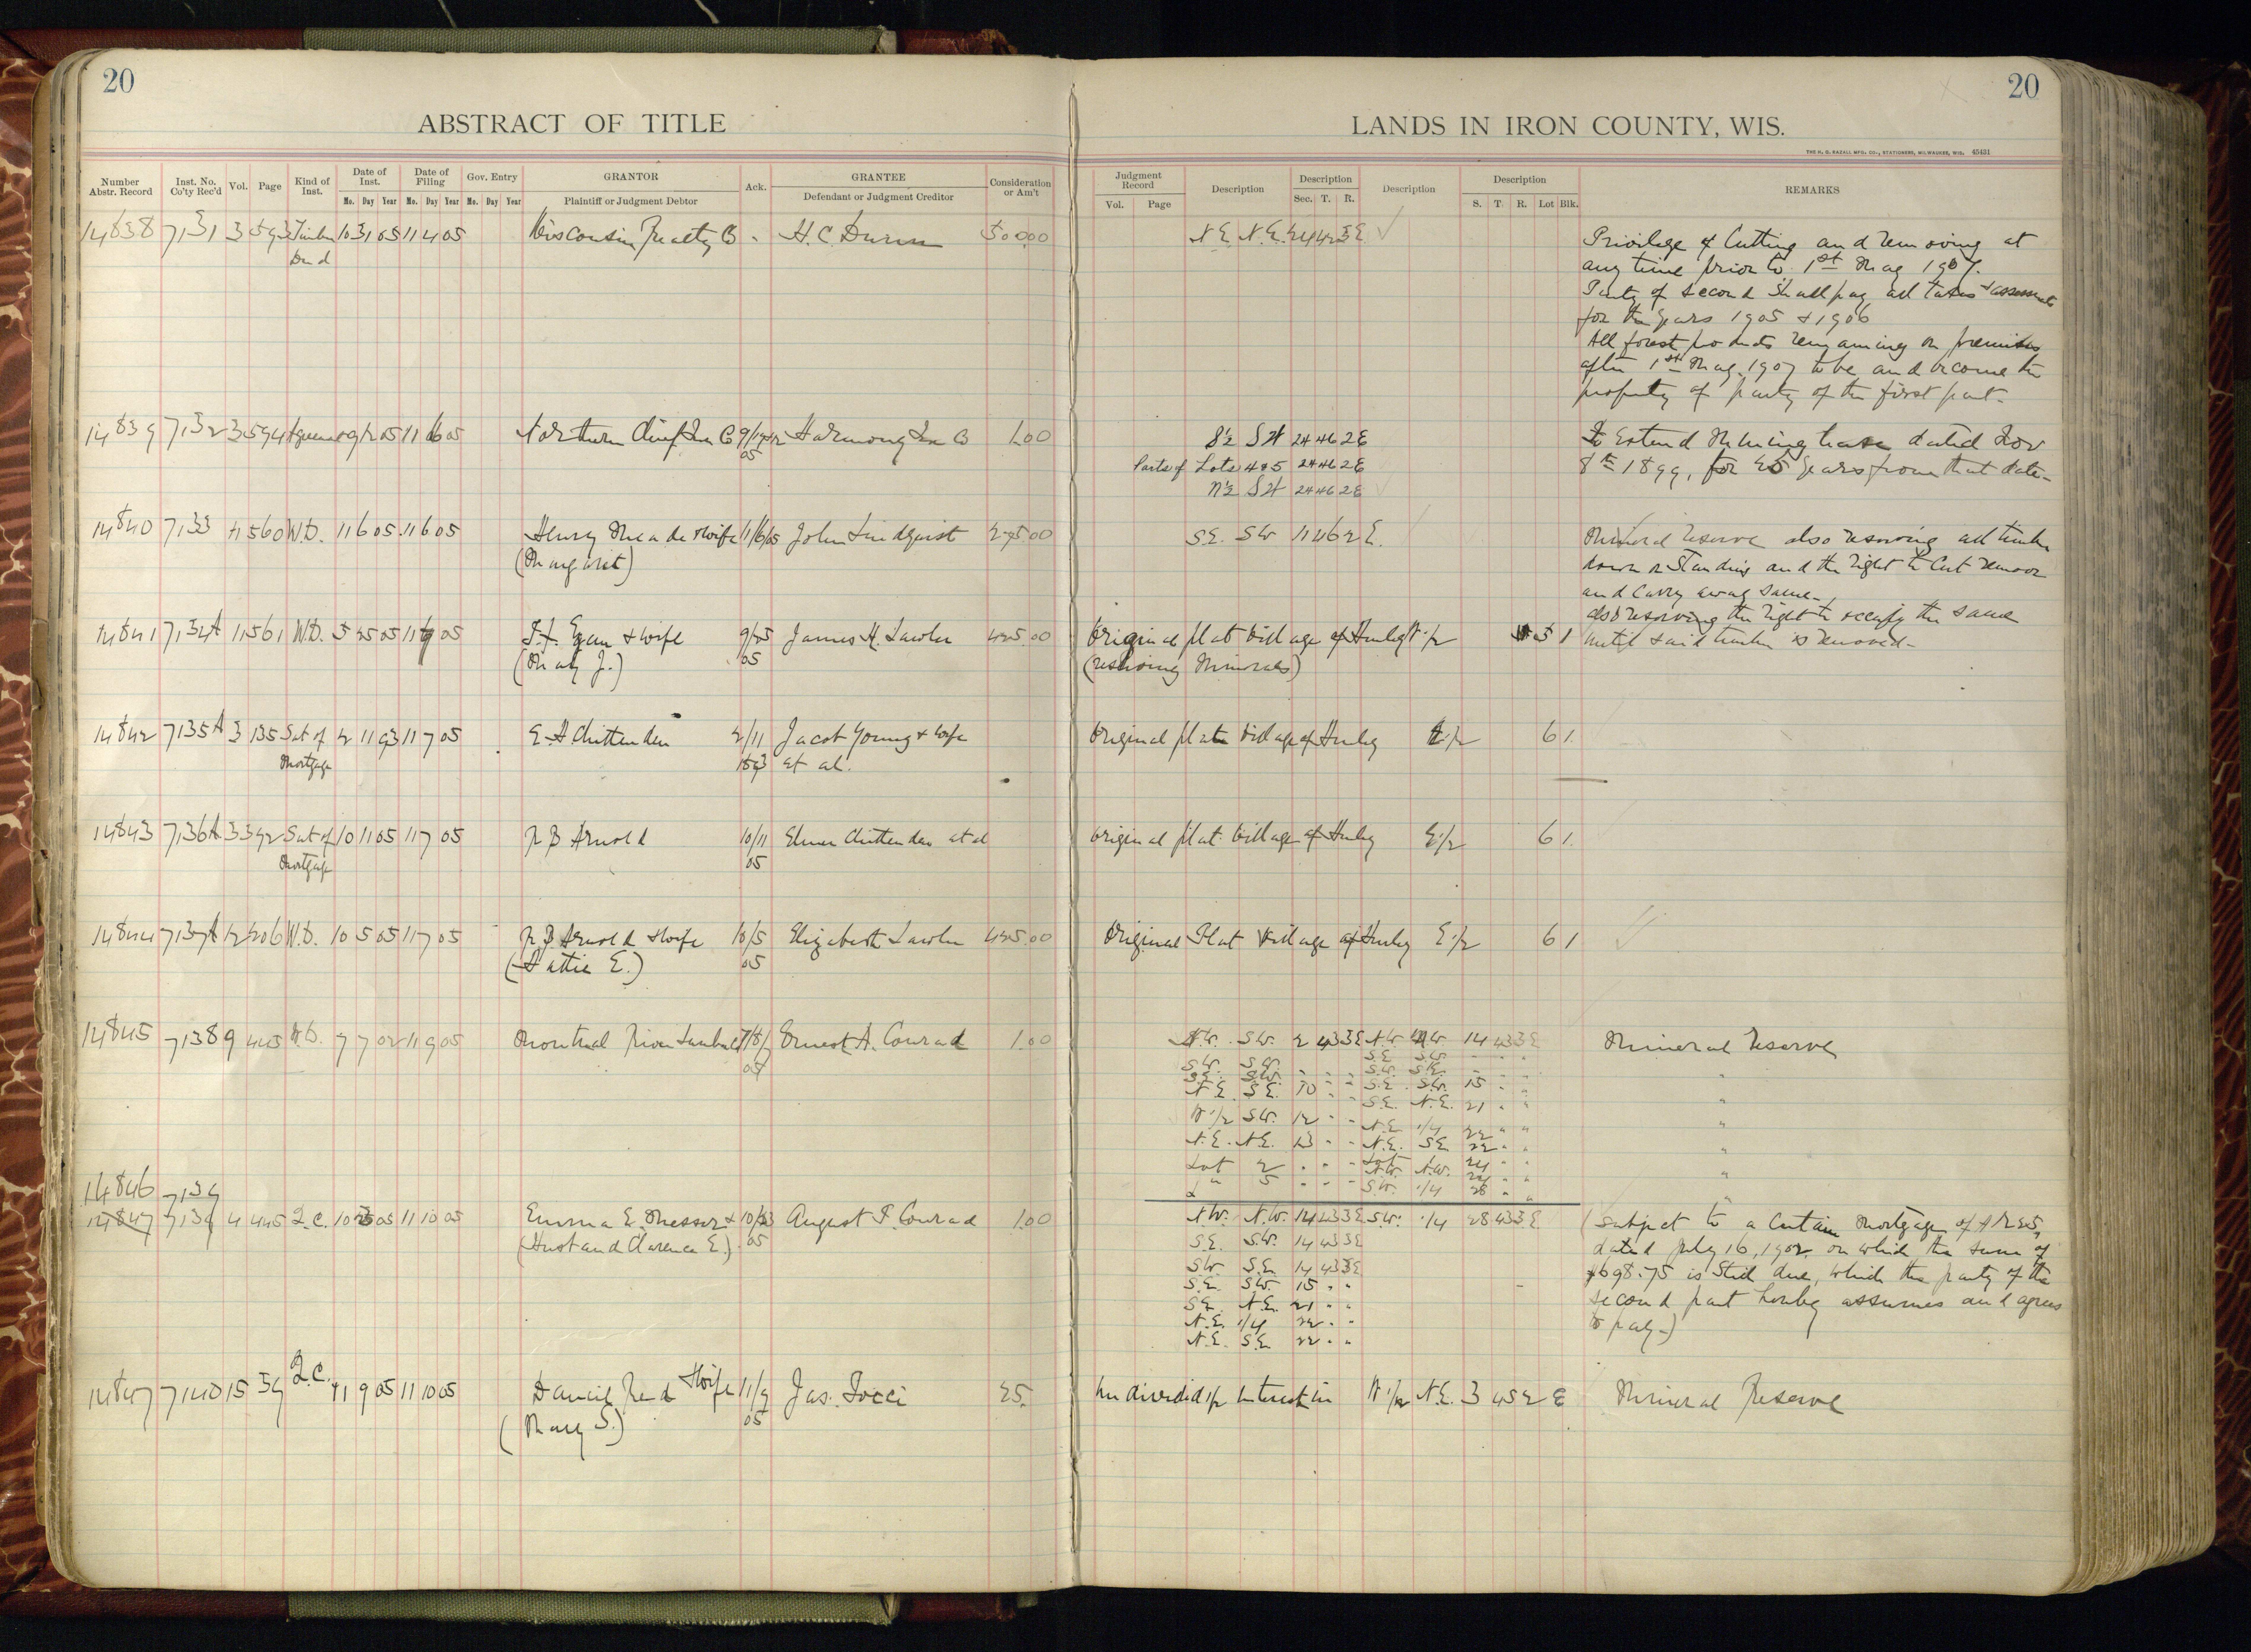 20
20
ABSTRACT OF TITLE
LANDS IN IRON COUNTY, WIS.
THE H. G. RAZALL MFG. CO., STATIONERS, MILWAUKEE, WIS. 45431
Number Abstr. Record Inst. No. Co'ty Rec'd Vol. Page Kind of Inst. Date of Inst. Mo. Day Year Date of Filing Mo. Day Year Gov. Entry Mo. Day Year GRANTOR Plaintiff or Judgment Debtor Ack. GRANTEE Defendant or Judgment Creditor Consideration or Am't
Judgment Record Vol. Page Description Description Sec. T. R. Description Description S. T. R. Lot Blk. REMARKS
14838 7131 3 593 Timber 10 31 05 11 4 05 Wisconsin Realty Co - H. C. 500.00 N.E. N.E. 24 42 3 E Privilege of Cutting and removing at
Deed any time prior to 1st May 1907.
Party of second Shall pay all taxes & assessments
for the years 1905 & 1906
All forest products remaining on premises
after 1st May 1907 to be and become the
property of party of the first part-
14839 7132 3 594 Agreement 9 12 05 11 6 05 Northern Chief Iron Co Harmony Iron Co 1.00 S½ SW 24 46 2E To Extend Mining lease dated Nov
05 Parts of Lots 4 & 5 24 46 2E 8th 1899, for 25 years from that date-
N½ SW 24 46 2E
14840 7133 11 560 W.D. 11 6 05 11 6 05 Henry Meade & wife 11/6/05 John Lindquist 275.00 S.E. SW 11 46 2 E. Mineral reserve also reserving all timber
(Margaret) down or Standing and the right to Cut remove
and Carry away same-
also reserving the right to occupy the same
14841 7134A 11 561 W.D. 5 25 05 11 7 05 T. F. Egan & wife 9/25 James H. Lawler 425.00 Original plat Village of Hurley W ½ 5 1 until said timber is removed-
(Mary J.) 05 (reserving Minerals)
14842 7135A 3 135 Sat of 2 11 93 11 7 05 E A Chittenden 2/11 Jacob Young & wife Original plat Village of Hurley E ½ 6 1.
Mortgage 1893 et al.
14843 7136A 3 392 Sat of 10 11 05 11 7 05 N B Arnold 10/11 Elmer Chittenden et al Original plat Village of Hurley E ½ 6 1.
Mortgage 05
14844 7137A 12 206 W.D. 10 5 05 11 7 05 N B Arnold & wife 10/5 Elizabeth Lawler 425.00 Original Plat Village of Hurley E ½ 6 1
(Hattie E.) 05
14845 7138 9 445 W.D. 7 7 02 11 9 05 Montreal River Lumber Ernest A. Conrad 1.00 N.W. SW. 2 43 3E N.W. NW 14 43 3E Mineral reserve
SW. SW. S.E. SW. - - "
S.E. SW. - - - S.W. S.E. - - "
N.E. S.E. 10 - - S.E. SW. 15 - "
S.E. N.E. 21 - "
W ½ SW. 12 - - N.E. ¼ 22 " "
N.E. N.E. 13 - - N.E. S.E. 22 - "
Lot 2 - - - Lot 1 24 - "
N.W. N.W.
" 5 - - - S.W. ¼ 28 - "
14846 7139
14847 7139 4 445 Q.C. 10 23 05 11 10 05 Emma E. Messer & 10/23 August F. Conrad 1.00 N.W. N.W. 14 43 3E S.W. ¼ 28 43 3 E (Subject to a Certain Mortgage of
(Husband Clarence E.) 05 S.E. SW. 14 43 3E dated July 16, 1902 on which the sum of
SW S.E. 14 43 3E $698.75 is Still due, which the party of the
S.E. SW. 15 - - second part hereby assumes and agrees
S.E. N.E. 21 - - to pay-)
N.E. ¼ 22 - -
N.E. S.E. 22 - "
14847 7140 15 39 Q.C. 11 9 05 11 10 05 Daniel Reid & wife 11/9 Jas. 25. Undivided ½ Interest in W ½ N.E. 3 45 2 E Mineral Reserve
(Mary S.) 05